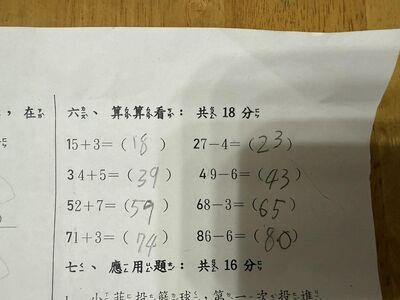 , 在
六、 算算看： 共 18 分
15+3=(18) 27-4=(23)
34+5=(39) 49-6=(43)
52+7=(59) 68-3=(65)
71+3=(74) 86-6=(80)
七、 應用題： 共 16 分
1. 小華投籃球，第一次投進